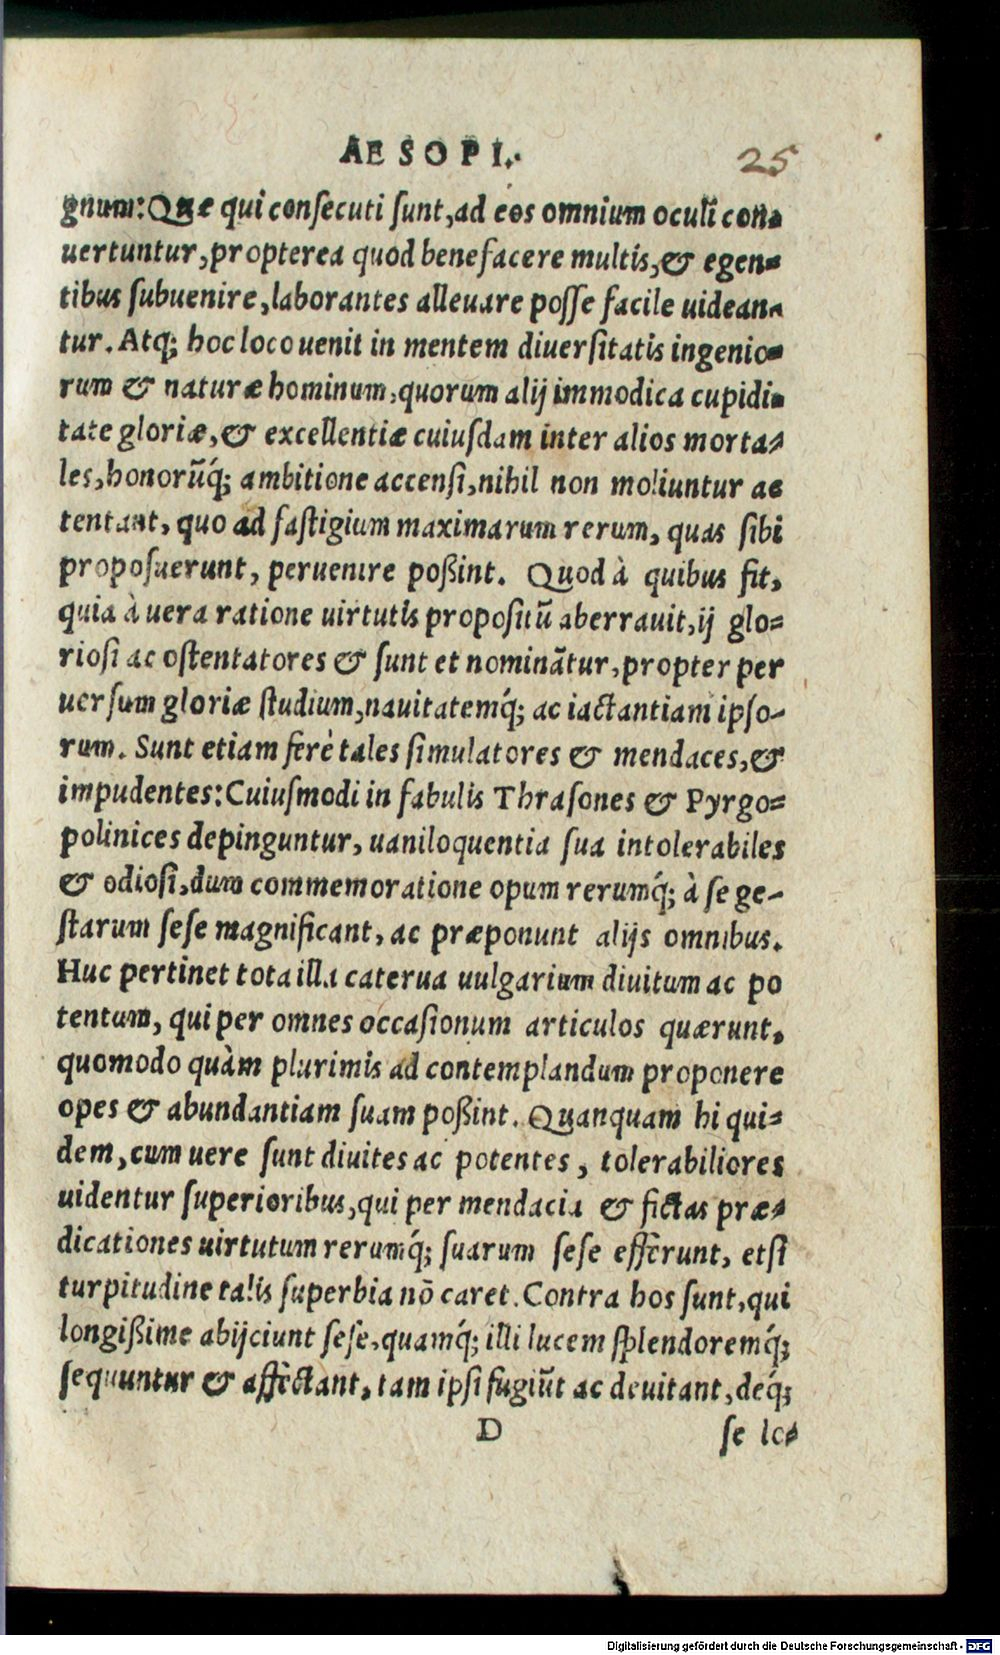 AESOPI.
25
gnum: Quæ qui consecuti sunt, ad eos omnium oculi con-
uertuntur, propterea quod benefacere multis, & egen-
tibus subuenire, laborantes alleuare posse facile uidean-
tur. Atq; hoc loco uenit in mentem diuersitatis ingenio-
rum & naturæ hominum, quorum alij immodica cupidi-
tate gloriæ, & excellentiæ cuiusdam inter alios morta-
les, honorūq́; ambitione accensi, nihil non moliuntur ac
tentant, quo ad fastigium maximarum rerum, quas sibi
proposuerunt, peruenire poßint. Quod à quibus fit,
quia à uera ratione uirtutis propositū aberrauit, ij glo-
riosi ac ostentatores & sunt et nominātur, propter per
uersum gloriæ studium, nauitatemq́; ac iactantiam ipso-
rum. Sunt etiam ferè tales simulatores & mendaces, &
impudentes: Cuiusmodi in fabulis Thrasones & Pyrgo-
polinices depinguntur, uaniloquentia sua intolerabiles
& odiosi, dum commemoratione opum rerumq́; à se ge-
starum sese magnificant, ac præponunt alijs omnibus.
Huc pertinet tota illa caterua uulgarium diuitum ac po
tentum, qui per omnes occasionum articulos quærunt,
quomodo quàm plurimis ad contemplandum proponere
opes & abundantiam suam poßint. Quanquam hi qui-
dem, cum uere sunt diuites ac potentes, tolerabiliores
uidentur superioribus, qui per mendacia & fictas præ-
dicationes uirtutum rerumq́; suarum sese efferunt, etsi
turpitudine talis superbia nō caret. Contra hos sunt, qui
longißime abijciunt sese, quamq́; illi lucem splendoremq́;
sequuntur & affectant, tam ipsi fugiūt ac deuitant, deq́;
D
se lo-
Digitalisierung gefördert durch die Deutsche Forschungsgemeinschaft - DFG